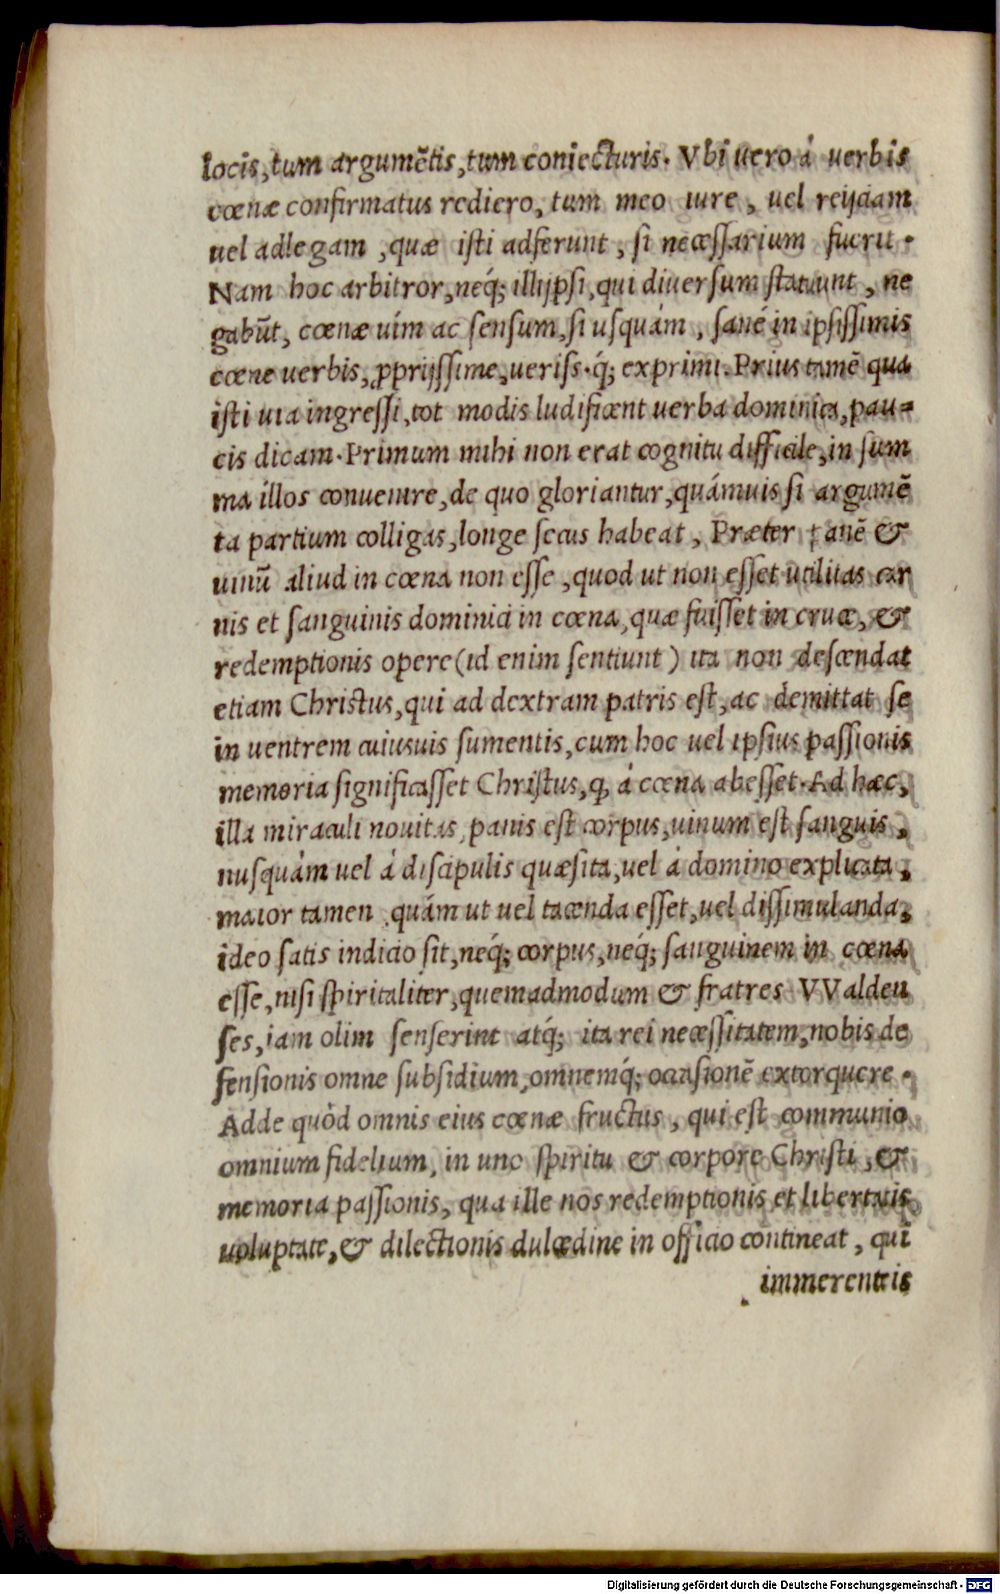 locis, tum argumẽtis, tum coniecturis. Vbi uero á uerbis
cœnæ confirmatus rediero, tum meo iure, uel reijciam
uel adlegam, quæ isti adferunt, si necessarium fuerit.
Nam hoc arbitror, neq́; illijpsi, qui diuersum statuunt, ne
gabũt, cœnæ uím ac sensum, si usquám, sané in ipsissimis
cœne uerbis, ꝓprijssime, ueriss.q́; exprimi. Prius tamẽ qua
isti uia ingressi, tot modis ludificent uerba dominica, pau=
cis dicam. Primum mihi non erat cognitu difficile, in sum
ma illos conuenire, de quo gloriantur, quámuis si argumẽ
ta partium colligas, longe secus habeat, Præter panẽ &
uinũ aliud in cœna non esse, quod ut non esset utilitas car
nis et sanguinis dominici in cœna, quæ fuisset in cruce, &
redemptionis opere (id enim sentiunt) ita non descendat
etiam Christus, qui ad dextram patris est, ac demittat se
in uentrem cuiusuis sumentis, cum hoc uel ipsius passionis
memoria significasset Christus, ꝙ á cœna abesset. Ad hæc,
illa miraculi nouitas, panis est corpus, uinum est sanguis,
nusquám uel á discipulis quæsita, uel á domino explicata,
maior tamen, quám ut uel tacenda esset, uel dissimulanda,
ideo satis indicio sit, neq́; corpus, neq́; sanguinem in cœna
esse, nisi spiritaliter, quemadmodum & fratres VValden
ses, iam olim senserint atq́; ita rei necessitatem, nobis de
fensionis omne subsidium, omnemq́; occasionẽ extorquere.
Adde quòd omnis eius cœnæ fructus, qui est communio
omnium fidelium, in uno spiritu & corpore Christi, &
memoria passionis, qua ille nos redemptionis et libertatis
uoluptate, & dilectionis dulcedine in officio contineat, qui
immerentis
Digitalisierung gefördert durch die Deutsche Forschungsgemeinschaft - DFG